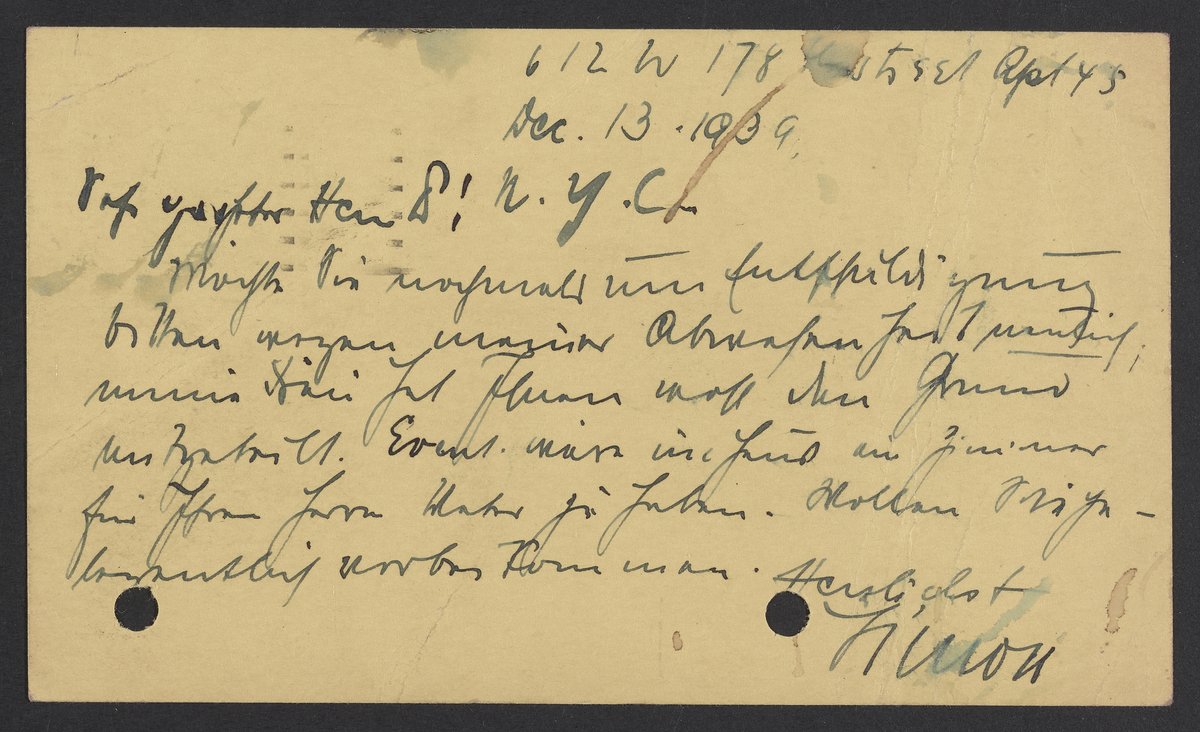 612 W 178 Street Apt 45
Dec. 13. 1939.
N. Y. C.
Sehr geehrter Herr D!
Möchte Sie nochmals um Entschuldigung
bitten wegen meiner Abwesenheit neulich,
meine Frau hat Ihnen wohl den Grund
mitgeteilt. Event. wäre im Haus ein Zimmer
für Ihren Herrn Vater zu haben. Wollen Sie ge-
legentlich vorbei kommen.
Herzlichst
Simon